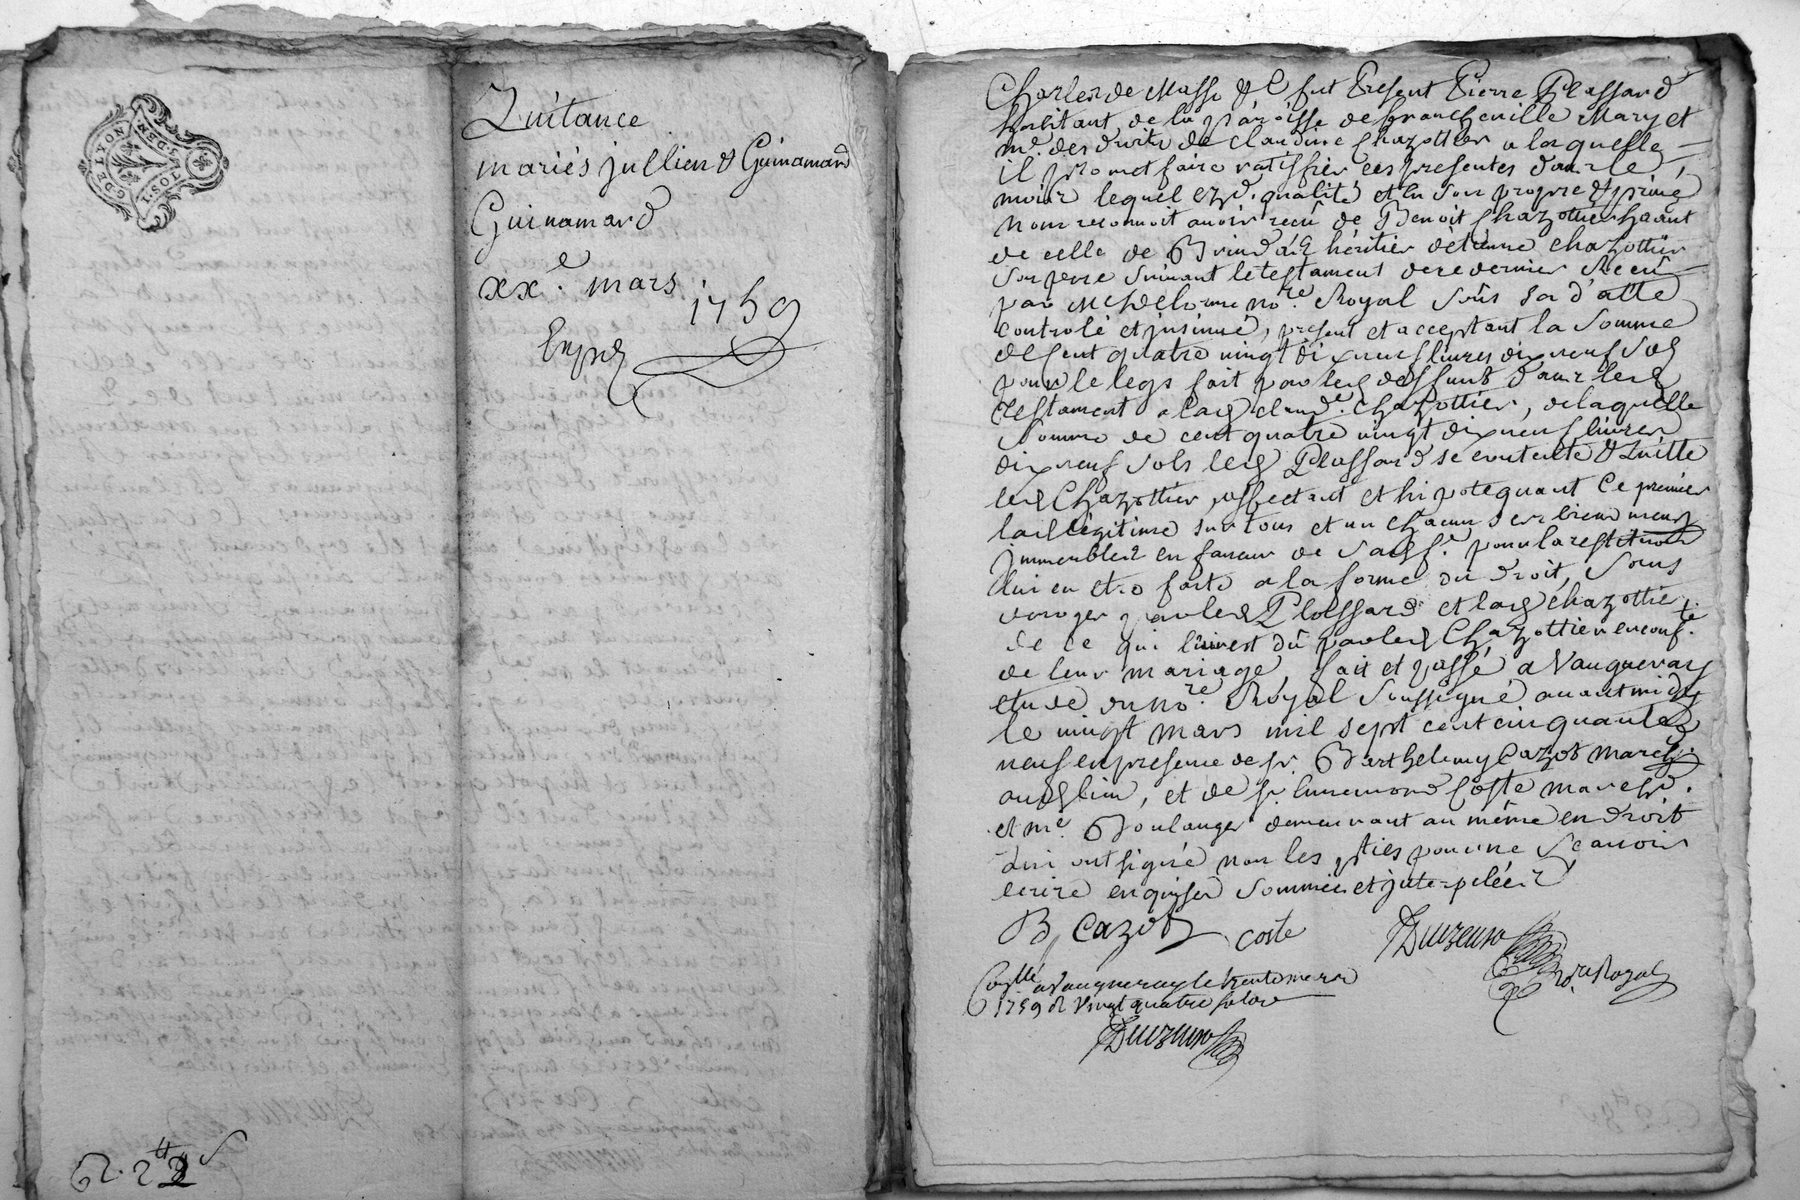 GDE LYON
1 SOL
Quitance
mariés jullien & Guinamand
Guinamand
xx.e mars 1759
Exped
C. 2tt 2s
Charles de Masso &c fut Present Pierre Plassard
habitant de la paroisse de francheville Mary et
me. des droits de Claudine Chazottier a laquelle
il promet faire ratiffier ces presentes dans le
mois lequel ezd. qualité et en son propre & privé
nom reconnoit avoir recû de Benoit Chazottier hâant
de celle de Brindas héritier d'etienne chazottier
son pere suivant le testament de ce dernier Recû
par Me Delorme nore. Royal sous sa d'atte
controlé et insinué, present et acceptant la somme
de Cent quatre vingt dix neuf livres dix neuf sols
pour le legs fait par led deffunt dans led
testament a lad claude. chazottier, de laquelle
somme de cent quatre vingt dix neuf livres
dix neuf sols led Plassard se contente & Quitte
led Chazottier, affectant et hipotequant ce premier
lad légitime sur tous et un chacun ses biens meub
immeubles en faveur de sad f.e pour la restitution
lui en etre faite a la forme du droit, sous
par led Plassard et lad chazottier
de ce qui leur est dû par led Chazottier en conf.te
de leur mariage, fait et passé a Vaugneray
etude du nore. Royal soussigné avant midy
le vingt mars mil sept cent cinquante
neuf en presence de sr. Barthelemy Cazot march.
aud lieu, et de sr. Coste march.
et me. Boulanger demeurant au même endroit
qui ont signé non les pties pour ne sçavoir
ecrire enquises sommées et interpelées
B, Cazot
coste
nore Royal
Conlle a Vaugneray le trente mars
1759 R Vingt quatre sols